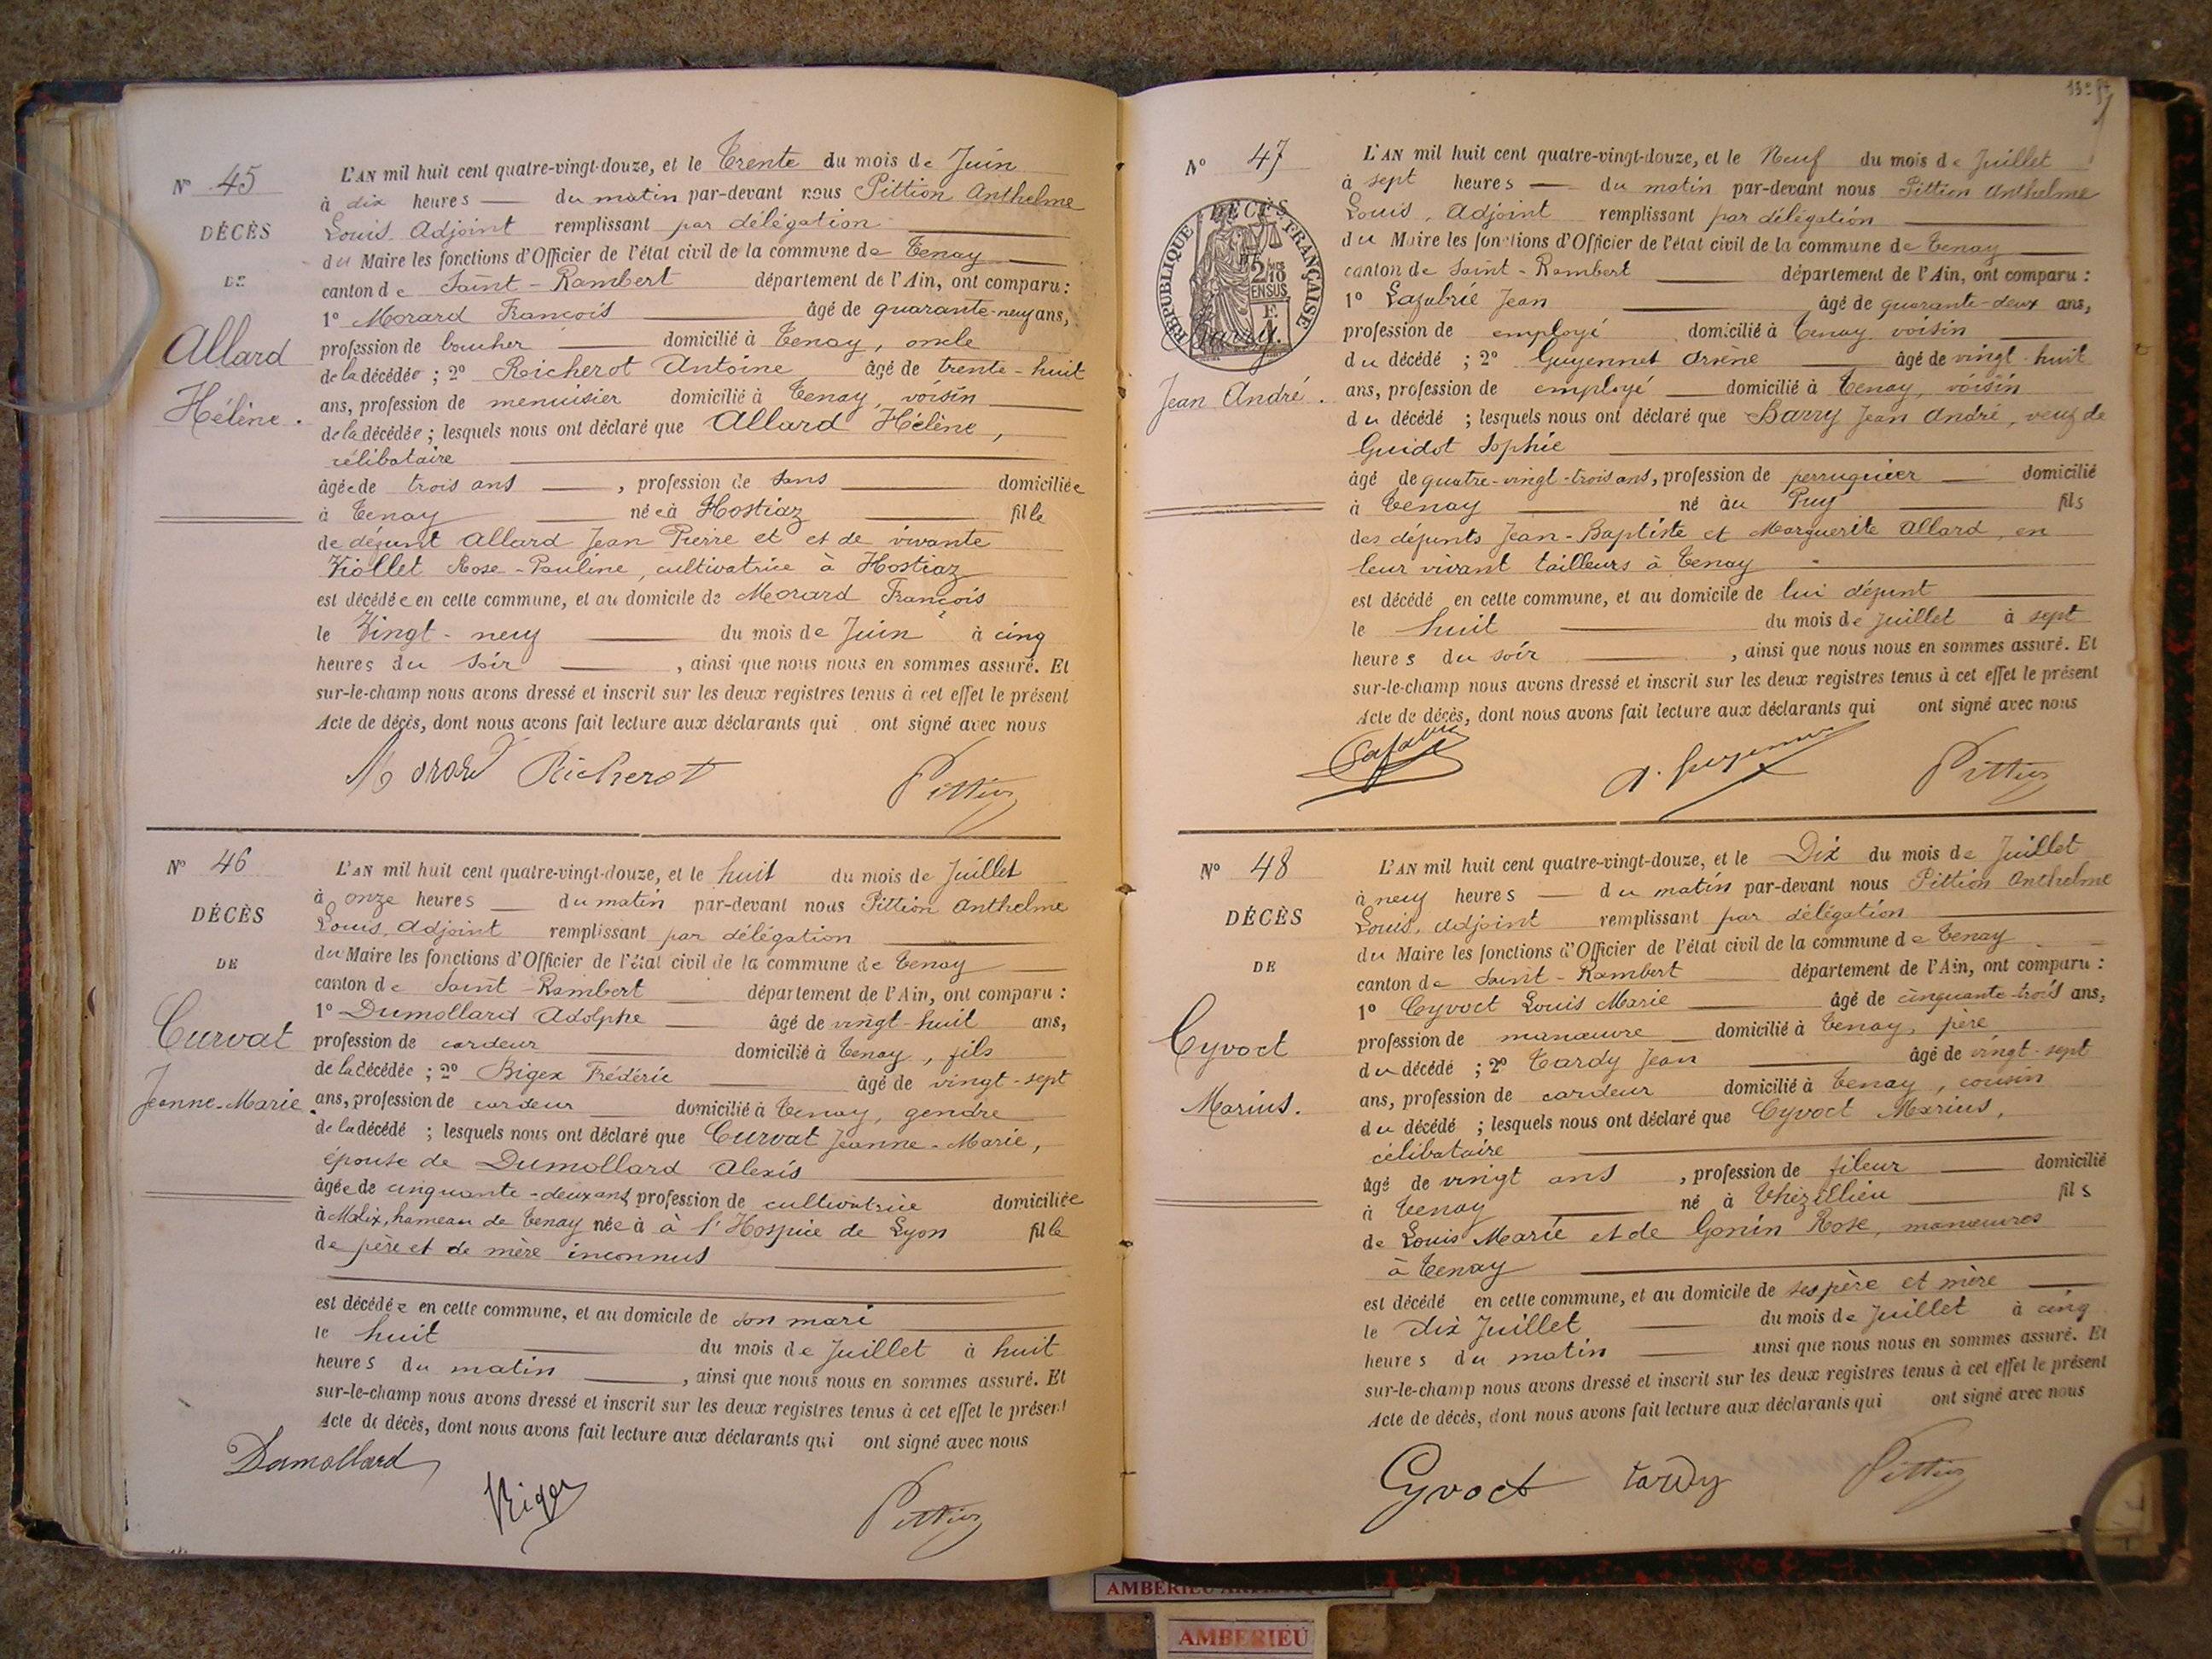 N° 45
DÉCÈS
DE
Allard
Hélène.
L'AN mil huit cent quatre-vingt-douze, et le Trente du mois de Juin
à dix heures — du matin par-devant nous Pittion Anthelme
Louis, Adjoint remplissant par délégation
du Maire les fonctions d'Officier de l'état civil de la commune de Tenay
canton de Saint-Rambert département de l'Ain, ont comparu :
1° Morard François âgé de quarante-neuf ans,
profession de boucher domicilié à Tenay, oncle
de la décédée ; 2° Richerot Antoine âgé de trente-huit
ans, profession de menuisier domicilié à Tenay, voisin
de la décédée ; lesquels nous ont déclaré que Allard Hélène,
célibataire
âgée de trois ans — , profession de sans domiciliée
à Tenay née à Hostiaz fille
de défunt Allard Jean Pierre et et de vivante
Viollet Rose-Pauline, cultivatrice à Hostiaz
est décédée en cette commune, et au domicile de Morard François
le Vingt-neuf du mois de Juin à cinq
heures du soir , ainsi que nous nous en sommes assuré. Et
sur-le-champ nous avons dressé et inscrit sur les deux registres tenus à cet effet le présent
Acte de décès, dont nous avons fait lecture aux déclarants qui ont signé avec nous
Morard Richerot Pittion
N° 46
DÉCÈS
DE
Curvat
Jeanne-Marie.
L'AN mil huit cent quatre-vingt-douze, et le huit du mois de Juillet
à onze heures — du matin par-devant nous Pittion Anthelme
Louis, Adjoint remplissant par délégation
du Maire les fonctions d'Officier de l'état civil de la commune de Tenay
canton de Saint-Rambert département de l'Ain, ont comparu :
1° Dumollard Adolphe âgé de vingt-huit ans,
profession de cardeur domicilié à Tenay, fils
de la décédée ; 2° Bigex Frédéric âgé de vingt-sept
ans, profession de cardeur domicilié à Tenay, gendre
de la décédé ; lesquels nous ont déclaré que Curvat Jeanne-Marie,
épouse de Dumollard Alexis
âgée de cinquante-deux ans, profession de cultivatrice domiciliée
à Malix, hameau de Tenay née à à l'Hospice de Lyon fille
de père et de mère inconnus
est décédée en cette commune, et au domicile de son mari
le huit du mois de Juillet à huit
heures du matin , ainsi que nous nous en sommes assuré. Et
sur-le-champ nous avons dressé et inscrit sur les deux registres tenus à cet effet le présent
Acte de décès, dont nous avons fait lecture aux déclarants qui ont signé avec nous
Dumollard
Bigex Pittion
N° 47
DÉCÈS
RÉPUBLIQUE FRANÇAISE
2 /10
EN SUS
Barry.
Jean André.
L'AN mil huit cent quatre-vingt-douze, et le Neuf du mois de Juillet
à sept heures — du matin par-devant nous Pittion Anthelme
Louis, Adjoint remplissant par délégation
du Maire les fonctions d'Officier de l'état civil de la commune de Tenay
canton de Saint-Rambert département de l'Ain, ont comparu :
1° Lafabrie Jean âgé de quarante-deux ans,
profession de employé domicilié à Tenay voisin
du décédé ; 2° Guyennet Arsène âgé de vingt-huit
ans, profession de employé domicilié à Tenay, voisin
du décédé ; lesquels nous ont déclaré que Barry Jean André, veuf de
Guidot Sophie
âgé de quatre-vingt-trois ans, profession de perruquier domicilié
à Tenay né au Puy fils
des défunts Jean-Baptiste et Marguerite Allard, en
leur vivant tailleurs à Tenay
est décédé en cette commune, et au domicile de lui défunt
le huit du mois de Juillet à sept
heures du soir , ainsi que nous nous en sommes assuré. Et
sur-le-champ nous avons dressé et inscrit sur les deux registres tenus à cet effet le présent
Acte de décès, dont nous avons fait lecture aux déclarants qui ont signé avec nous
Pittion
N° 48
DÉCÈS
DE
Cyvoct
Marius.
L'AN mil huit cent quatre-vingt-douze, et le Dix du mois de Juillet
à neuf heures — du matin par-devant nous Pittion Anthelme
Louis, Adjoint remplissant par délégation
du Maire les fonctions d'Officier de l'état civil de la commune de Tenay
canton de Saint-Rambert département de l'Ain, ont comparu :
1° Cyvoct Louis Marie âgé de cinquante-trois ans,
profession de manœuvre domicilié à Tenay, père
du décédé ; 2° Tardy Jean âgé de vingt-sept
ans, profession de cardeur domicilié à Tenay, cousin
du décédé ; lesquels nous ont déclaré que Cyvoct Marius,
célibataire
âgé de vingt ans , profession de fileur domicilié
à Tenay né à Thézillieu fils
de Louis Marie et de Gonin Rose, manœuvres
à Tenay
est décédé en cette commune, et au domicile de ses père et mère
le dix Juillet du mois de Juillet à cinq
heures du matin ainsi que nous nous en sommes assuré. Et
sur-le-champ nous avons dressé et inscrit sur les deux registres tenus à cet effet le présent
Acte de décès, dont nous avons fait lecture aux déclarants qui ont signé avec nous
Cyvoct Tardy Pittion
AMBERIEU
AMBERIEU